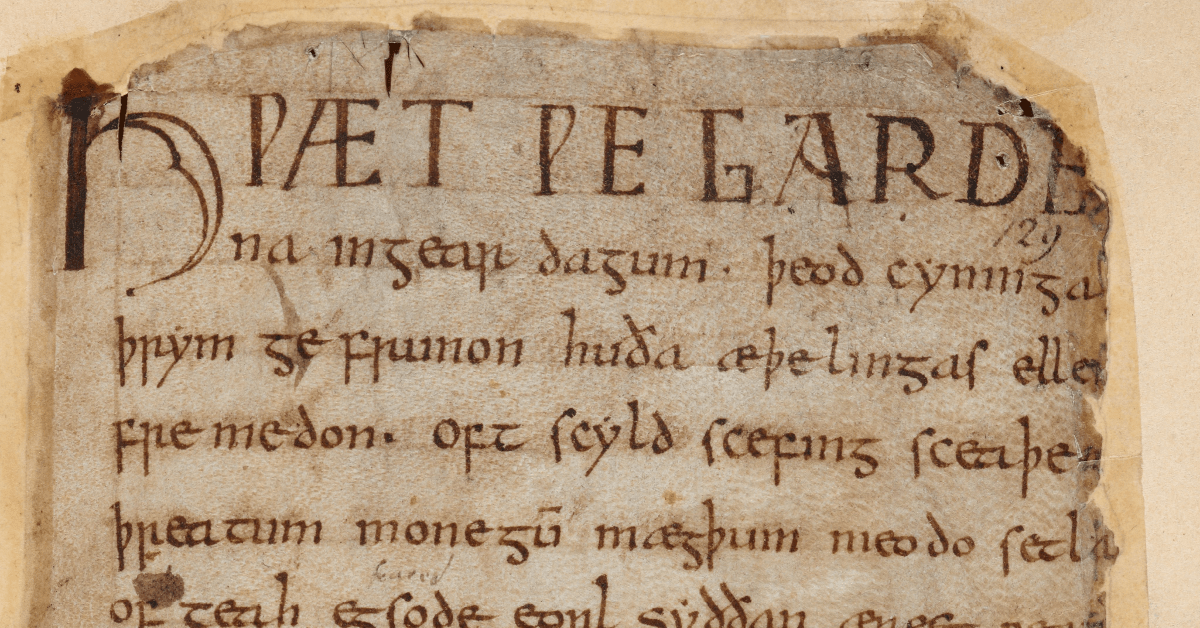 HǷÆT ǷE GARDE
na ingear dagum. þeod cyninga
129
þrym ge frunon huða æþelingas elle
fremedon. oft scyld scefing sceaþe
þreatum monegū mægþum meodo setla
of teah egsode eorl syððan ærest